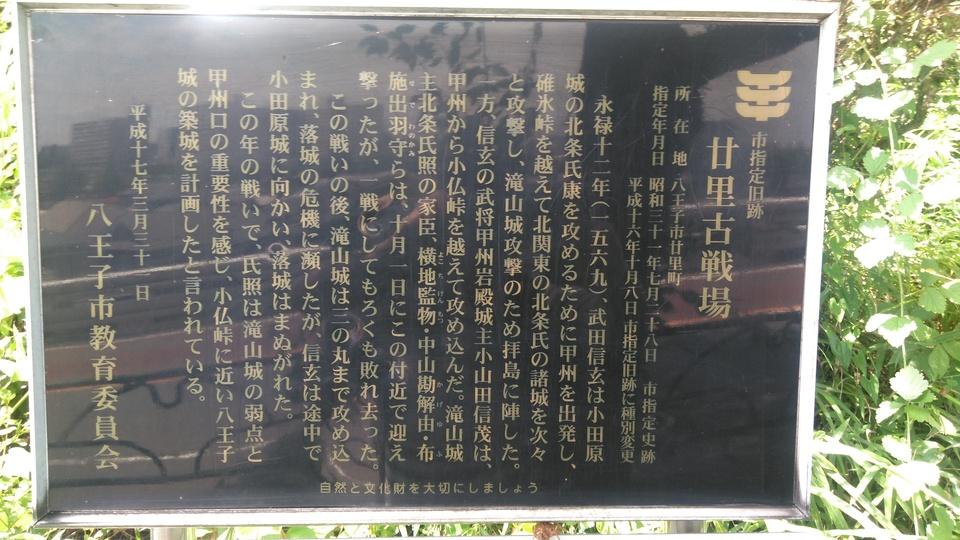 市指定旧跡
廿里古戦場
所在地 八王子市廿里町
指定年月日 昭和三十一年七月二十八日 市指定史跡
平成十六年十月八日 市指定旧跡に種別変更
永禄十二年(一五六九)、武田信玄は小田原
城の北条氏康を攻めるために甲州を出発し、
碓氷峠を越えて北関東の北条氏の諸城を次々
と攻撃し、滝山城攻撃のため拝島に陣した。
一方、信玄の武将甲州岩殿城主小山田信茂は、
甲州から小仏峠を越えて攻め込んだ。滝山城
主北条氏照の家臣、横地監物・中山勘解由・布
施出羽守らは、十月一日にこの付近で迎え
撃ったが、一戦にしてもろくも敗れ去った。
この戦いの後、滝山城は三の丸まで攻め込
まれ、落城の危機に瀕したが、信玄は途中で
小田原城に向かい、落城はまぬがれた。
この年の戦いで、氏照は滝山城の弱点と
甲州口の重要性を感じ、小仏峠に近い八王子
城の築城を計画したと言われている。
平成十七年三月三十一日
八王子市教育委員会
自然と文化財を大切にしましょう